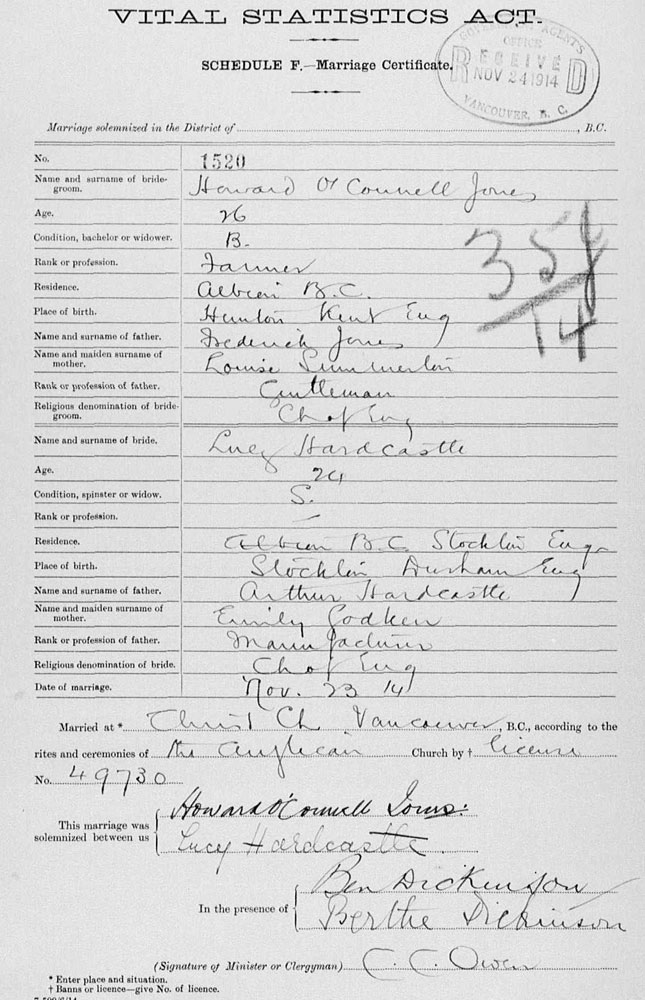 VITAL STATISTICS ACT.
SCHEDULE F.—Marriage Certificate.
GOVERNMENT AGENT'S
OFFICE
RECEIVED
NOV 24 1914
VANCOUVER, B. C.
Marriage solemnized in the District of , B.C.
No. 1520
Name and surname of bride-
groom. Howard O'Connell Jones
Age. 26
Condition, bachelor or widower. B.
Rank or profession. Farmer
Residence. Albion B.C.
Place of birth. Hunton Kent Eng
Name and surname of father. Frederick Jones
Name and maiden surname of
mother. Louise Summerton
Rank or profession of father. Gentleman
Religious denomination of bride-
groom. Ch of Eng
35
14
Name and surname of bride. Lucy Hardcastle
Age. 24
Condition, spinster or widow. S.
Rank or profession. —
Residence. Albion B.C. Stocklin Eng
Place of birth. Stocklin Durham Eng
Name and surname of father. Arthur Hardcastle
Name and maiden surname of
mother. Emily
Rank or profession of father.
Religious denomination of bride. Ch of Eng
Date of marriage. Nov. 23 14
Married at * Christ Ch Vancouver, B.C., according to the
rites and ceremonies of the Anglican Church by † license
No. 49730
This marriage was
solemnized between us
Howard O'Connell Jones.
Lucy Hardcastle.
In the presence of
Ben Dickinson
Berthe Dickinson
(Signature of Minister or Clergyman) C. C. Owen
* Enter place and situation.
† Banns or licence—give No. of licence.